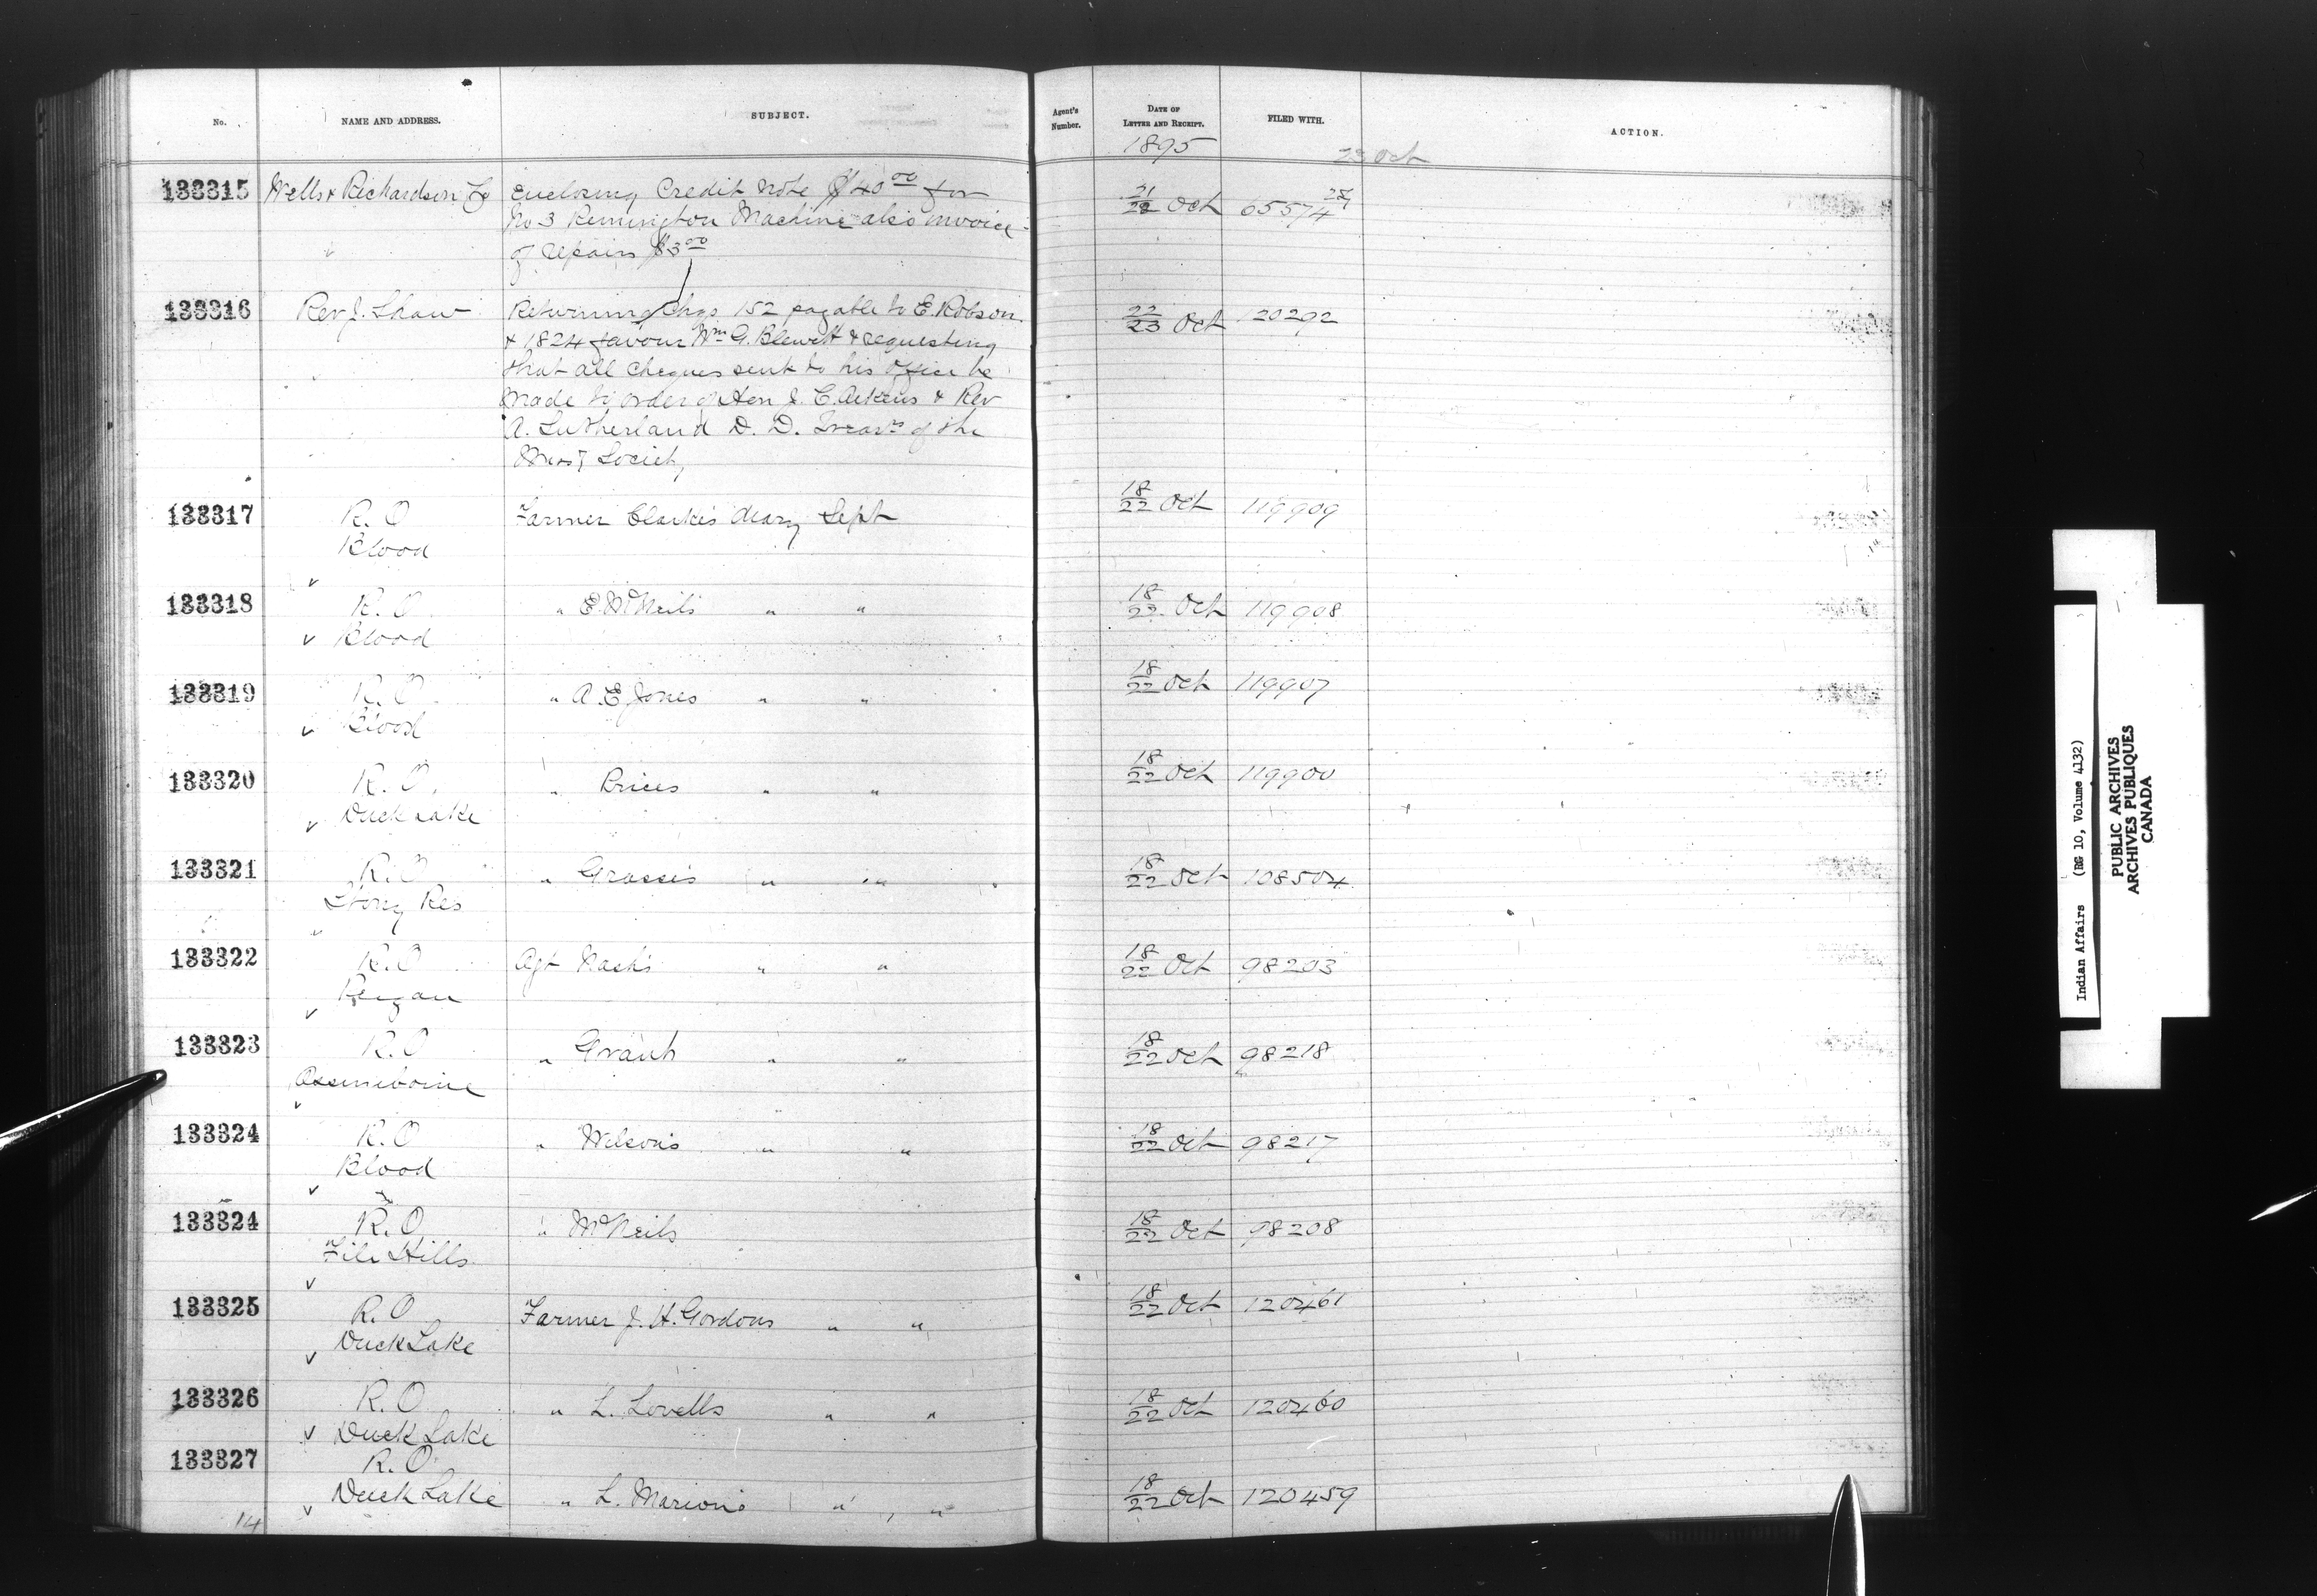 No. NAME AND ADDRESS. SUBJECT. Agent's Number. DATE OF LETTER AND RECEIPT. FILED WITH. ACTION.
1895 23 Oct
133315 Wells & Richardson Co Enclosing Credit Note $40 00 for 21/22 Oct 65574
No 3 Remington Machine also invoice
of repairs $3 00
133316 Rev J. Shaw Returning Chqs 152 payable to E. Robson 22/23 Oct 120292
& 1824 favour Wm G. Blewett & requesting
that all cheques sent to his office be
made to order of Hon J. C. Aikens & Rev
A. Sutherland D. D. Treasrs of the
Missy Society
133317 R. O Farmer Clarke's diary Sept 18/22 Oct 119909
Blood
133318 R. O " E. McNeil's " " 18/22 Oct 119908
Blood
133319 R. O " A. E Jones " " 18/22 Oct 119907
Blood
133320 R. O. " Prices " " 18/22 Oct 119900
Duck Lake
133321 R. O " Grasse's " " 18/22 Oct 108504
Stony Res
133322 R. O Agt Nash's " " 18/22 Oct 98203
Peigan
133323 R. O " Grant " " 18/22 Oct 98218
Assiniboine
133324 R. O " Wilson's " " 18/22 Oct 98217
Blood
133324 R. O " McNeils 18/22 Oct 98208
File Hills
133325 R. O Farmer J. H. Gordons " " 18/22 Oct 120461
Duck Lake
133326 R. O " L. Lovells " " 18/22 Oct 120460
Duck Lake
133327 R. O
Duck Lake " L. Marion's " " 18/22 Oct 120459
14
Indian Affairs (RG 10, Volume 4132)
PUBLIC ARCHIVES
ARCHIVES PUBLIQUES
CANADA